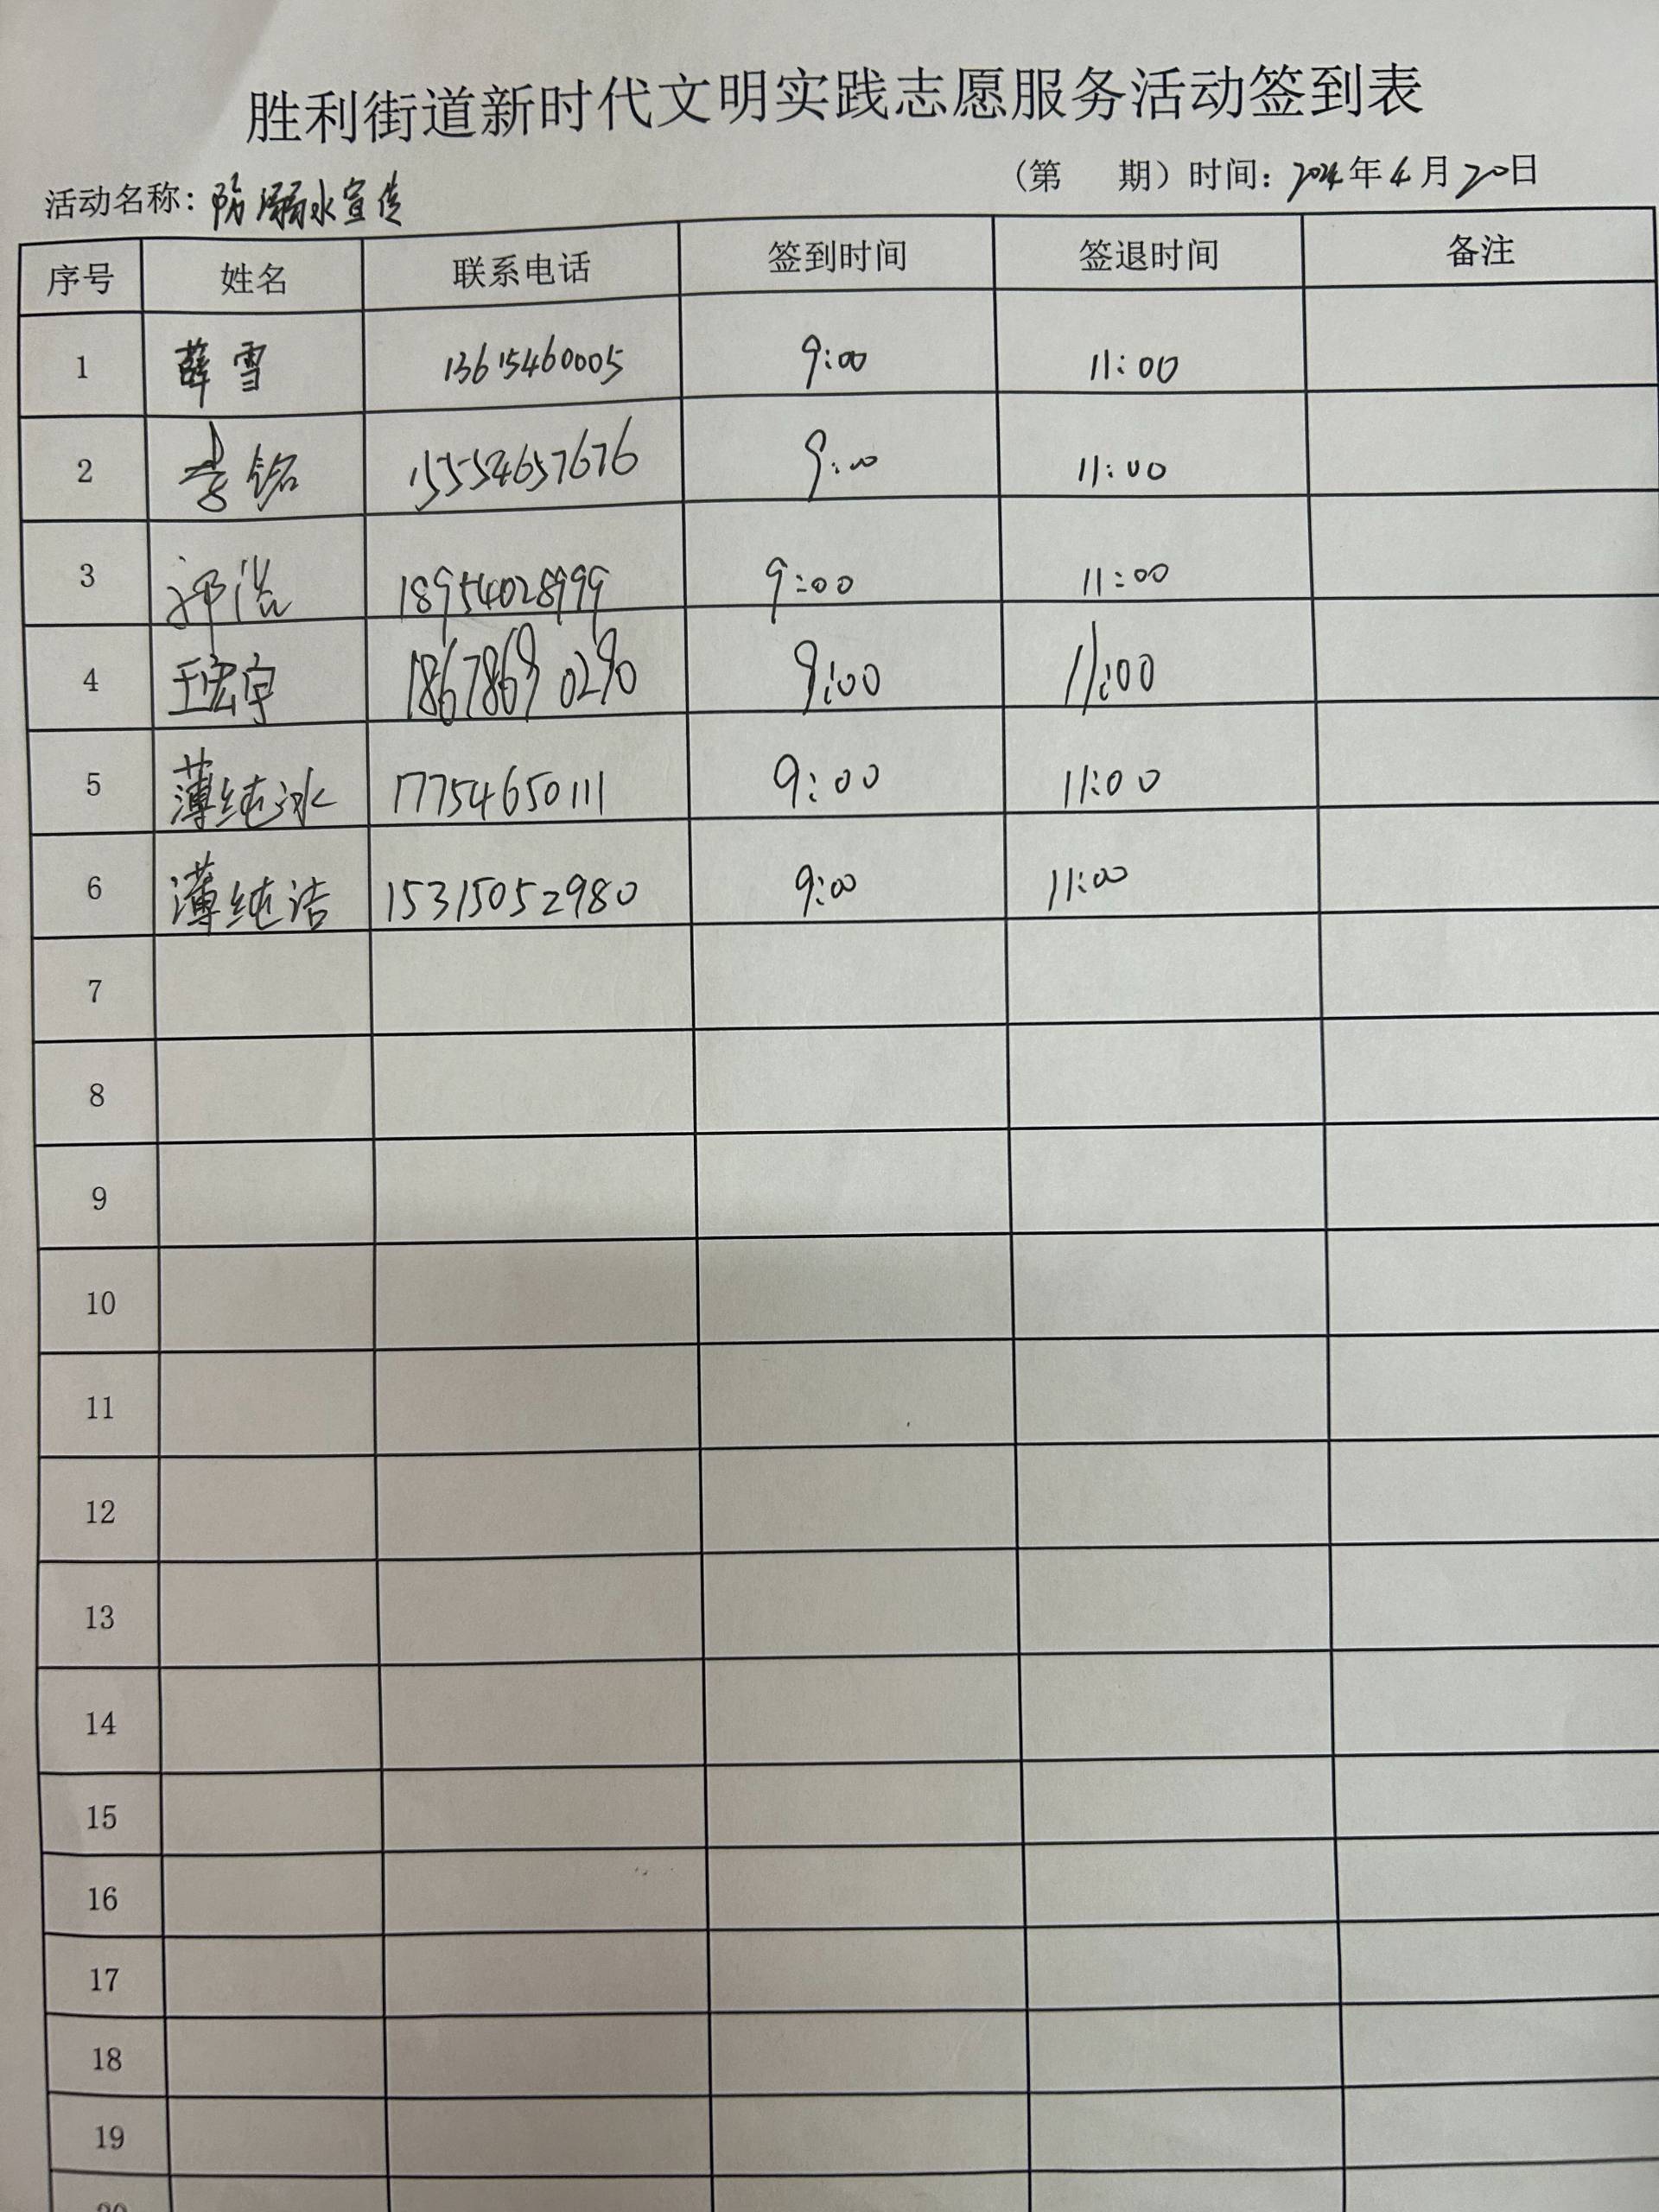 胜利街道新时代文明实践志愿服务活动签到表
活动名称：防溺水宣传 （第 期）时间：2024年4月20日
序号 姓名 联系电话 签到时间 签退时间 备注
1 薛雪 13615460005 9:00 11:00
2 铭 15554657676 9:00 11:00
3 18954028999 9:00 11:00
4 王宏宇 18678690290 9:00 11:00
5 薄纯冰 17754650111 9:00 11:00
6 薄纯洁 15315052980 9:00 11:00
7
8
9
10
11
12
13
14
15
16
17
18
19
20